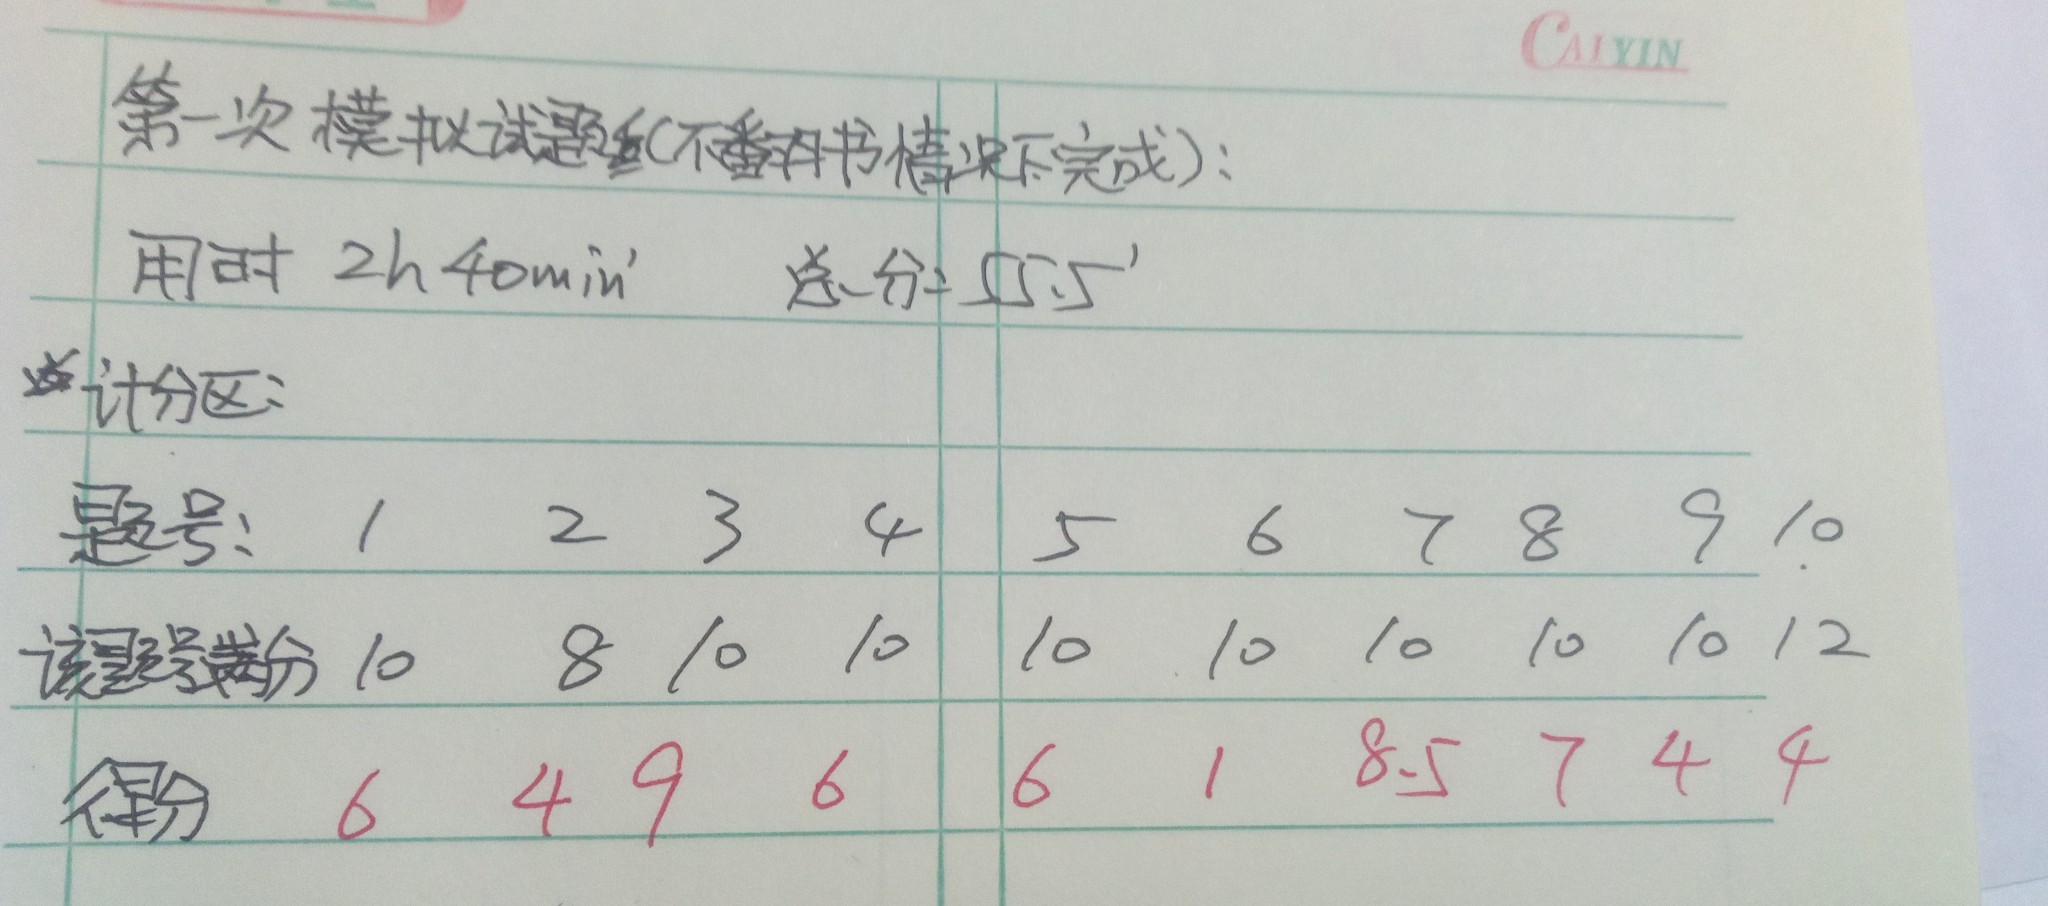 CAIYIN
第一次模拟试题(不番阅书情况下完成):
用时 2h 40min' 总分: 55.5'
计分区:
题号: 1 2 3 4 5 6 7 8 9 10
该题号满分 10 8 10 10 10 10 10 10 10 12
得分 6 4 9 6 6 1 8.5 7 4 4